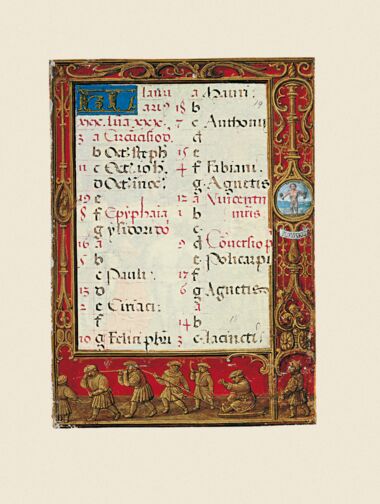 KL Januarius
xxx. Lūa xxx.
3 a Circūcisio d
b Oct. steph
11 c Oct. ioh.
d Oct. innoc.
19 e
8 f Epyphaia
g ysidori
16 a
5 b
c Pauli
13 d
2 e Ciriaci
f
10 g Felici pbri
a Mauri
18 b
7 c Anthonii
d
15 e
4 f Fabiani
g Agnetis
12 a Vincentii
1 b
c
9 d Cōversio p
e Policarpi
17 f
6 g Agnetis
a
14 b
3 c